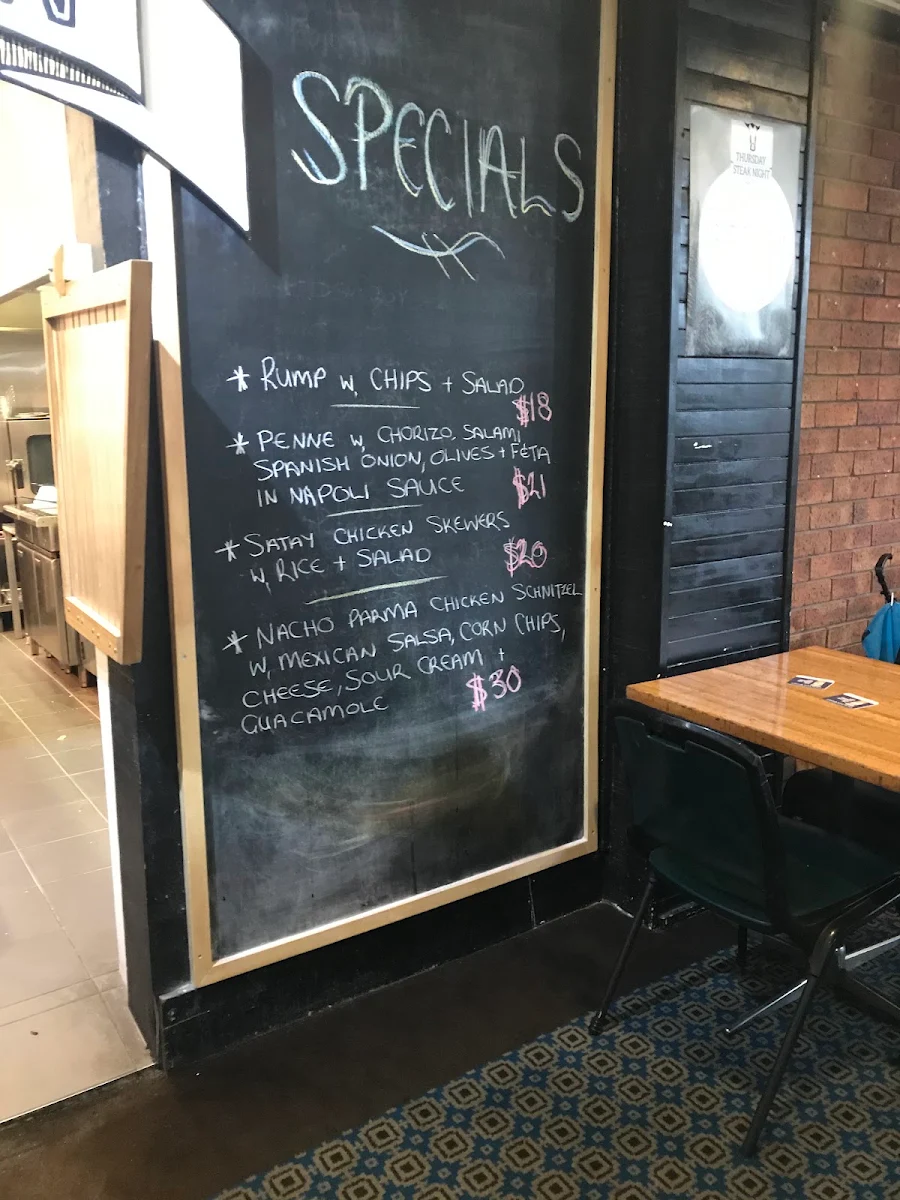 SPECIALS
* RUMP W, CHIPS + SALAD
$18
* PENNE W, CHORIZO, SALAMI,
SPANISH ONION, OLIVES + FETA
IN NAPOLI SAUCE
$21
* SATAY CHICKEN SKEWERS
W, RICE + SALAD
$20
* NACHO PARMA CHICKEN SCHNITZEL
W, MEXICAN SALSA, CORN CHIPS,
CHEESE, SOUR CREAM +
GUACAMOLE
$30
THURSDAY
STEAK NIGHT